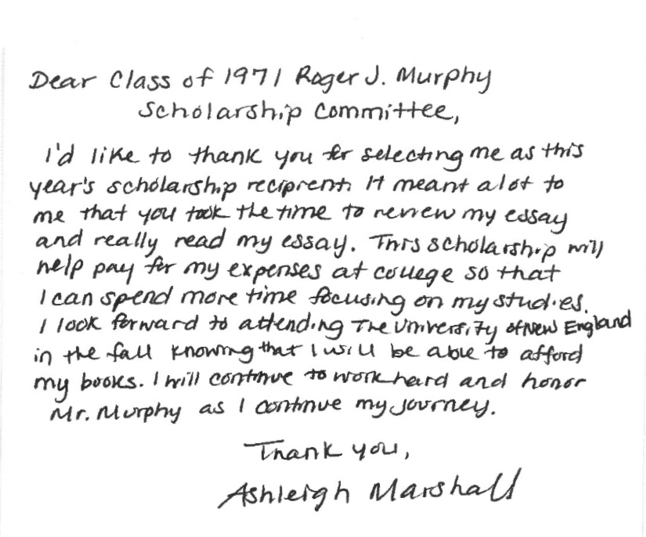 Dear Class of 1971 Roger J. Murphy
Scholarship Committee,
I'd like to thank you for selecting me as this
year's scholarship recipient. It meant a lot to
me that you took the time to review my essay
and really read my essay. This scholarship will
help pay for my expenses at college so that
I can spend more time focusing on my studies.
I look forward to attending The University of New England
in the fall knowing that I will be able to afford
my books. I will continue to work hard and honor
Mr. Murphy as I continue my journey.
Thank you,
Ashleigh Marshall